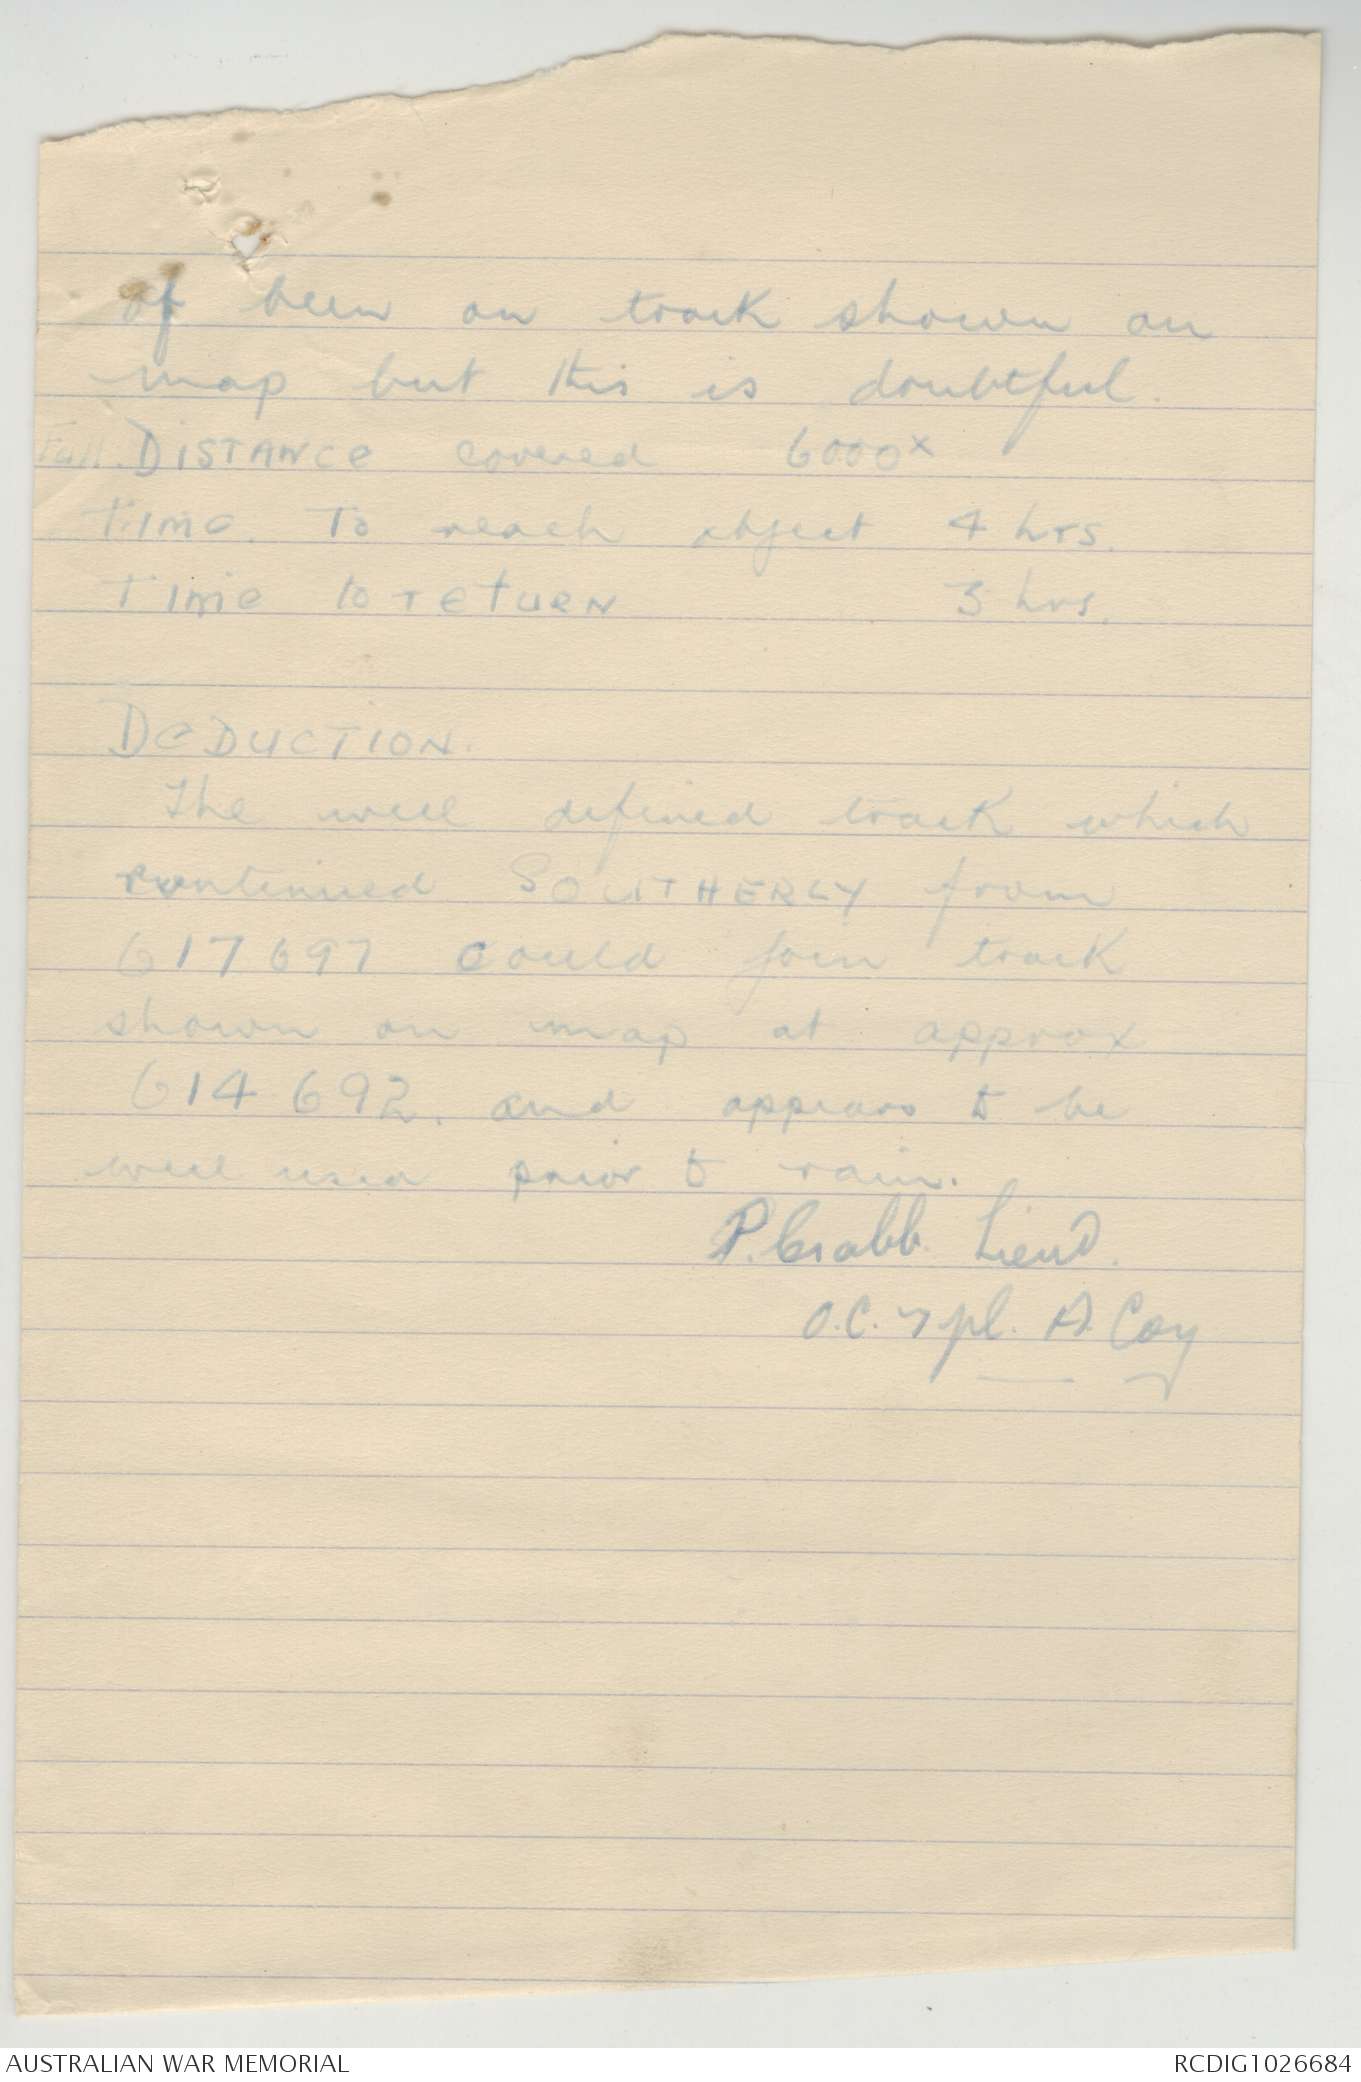 of been on track shown on
map but this is doubtful.
Full. DISTANCE covered 6000x
Time. To reach object 4 hrs.
Time to return 3 hrs.
DEDUCTION.
The well defined track which
continued SOUTHERLY from
617697 could join track
shown on map at approx
614692. and appears to be
well used prior to rain.
P. Crabb. Lieut.
O.C. 7 pl. A Coy
AUSTRALIAN WAR MEMORIAL
RCDIG1026684